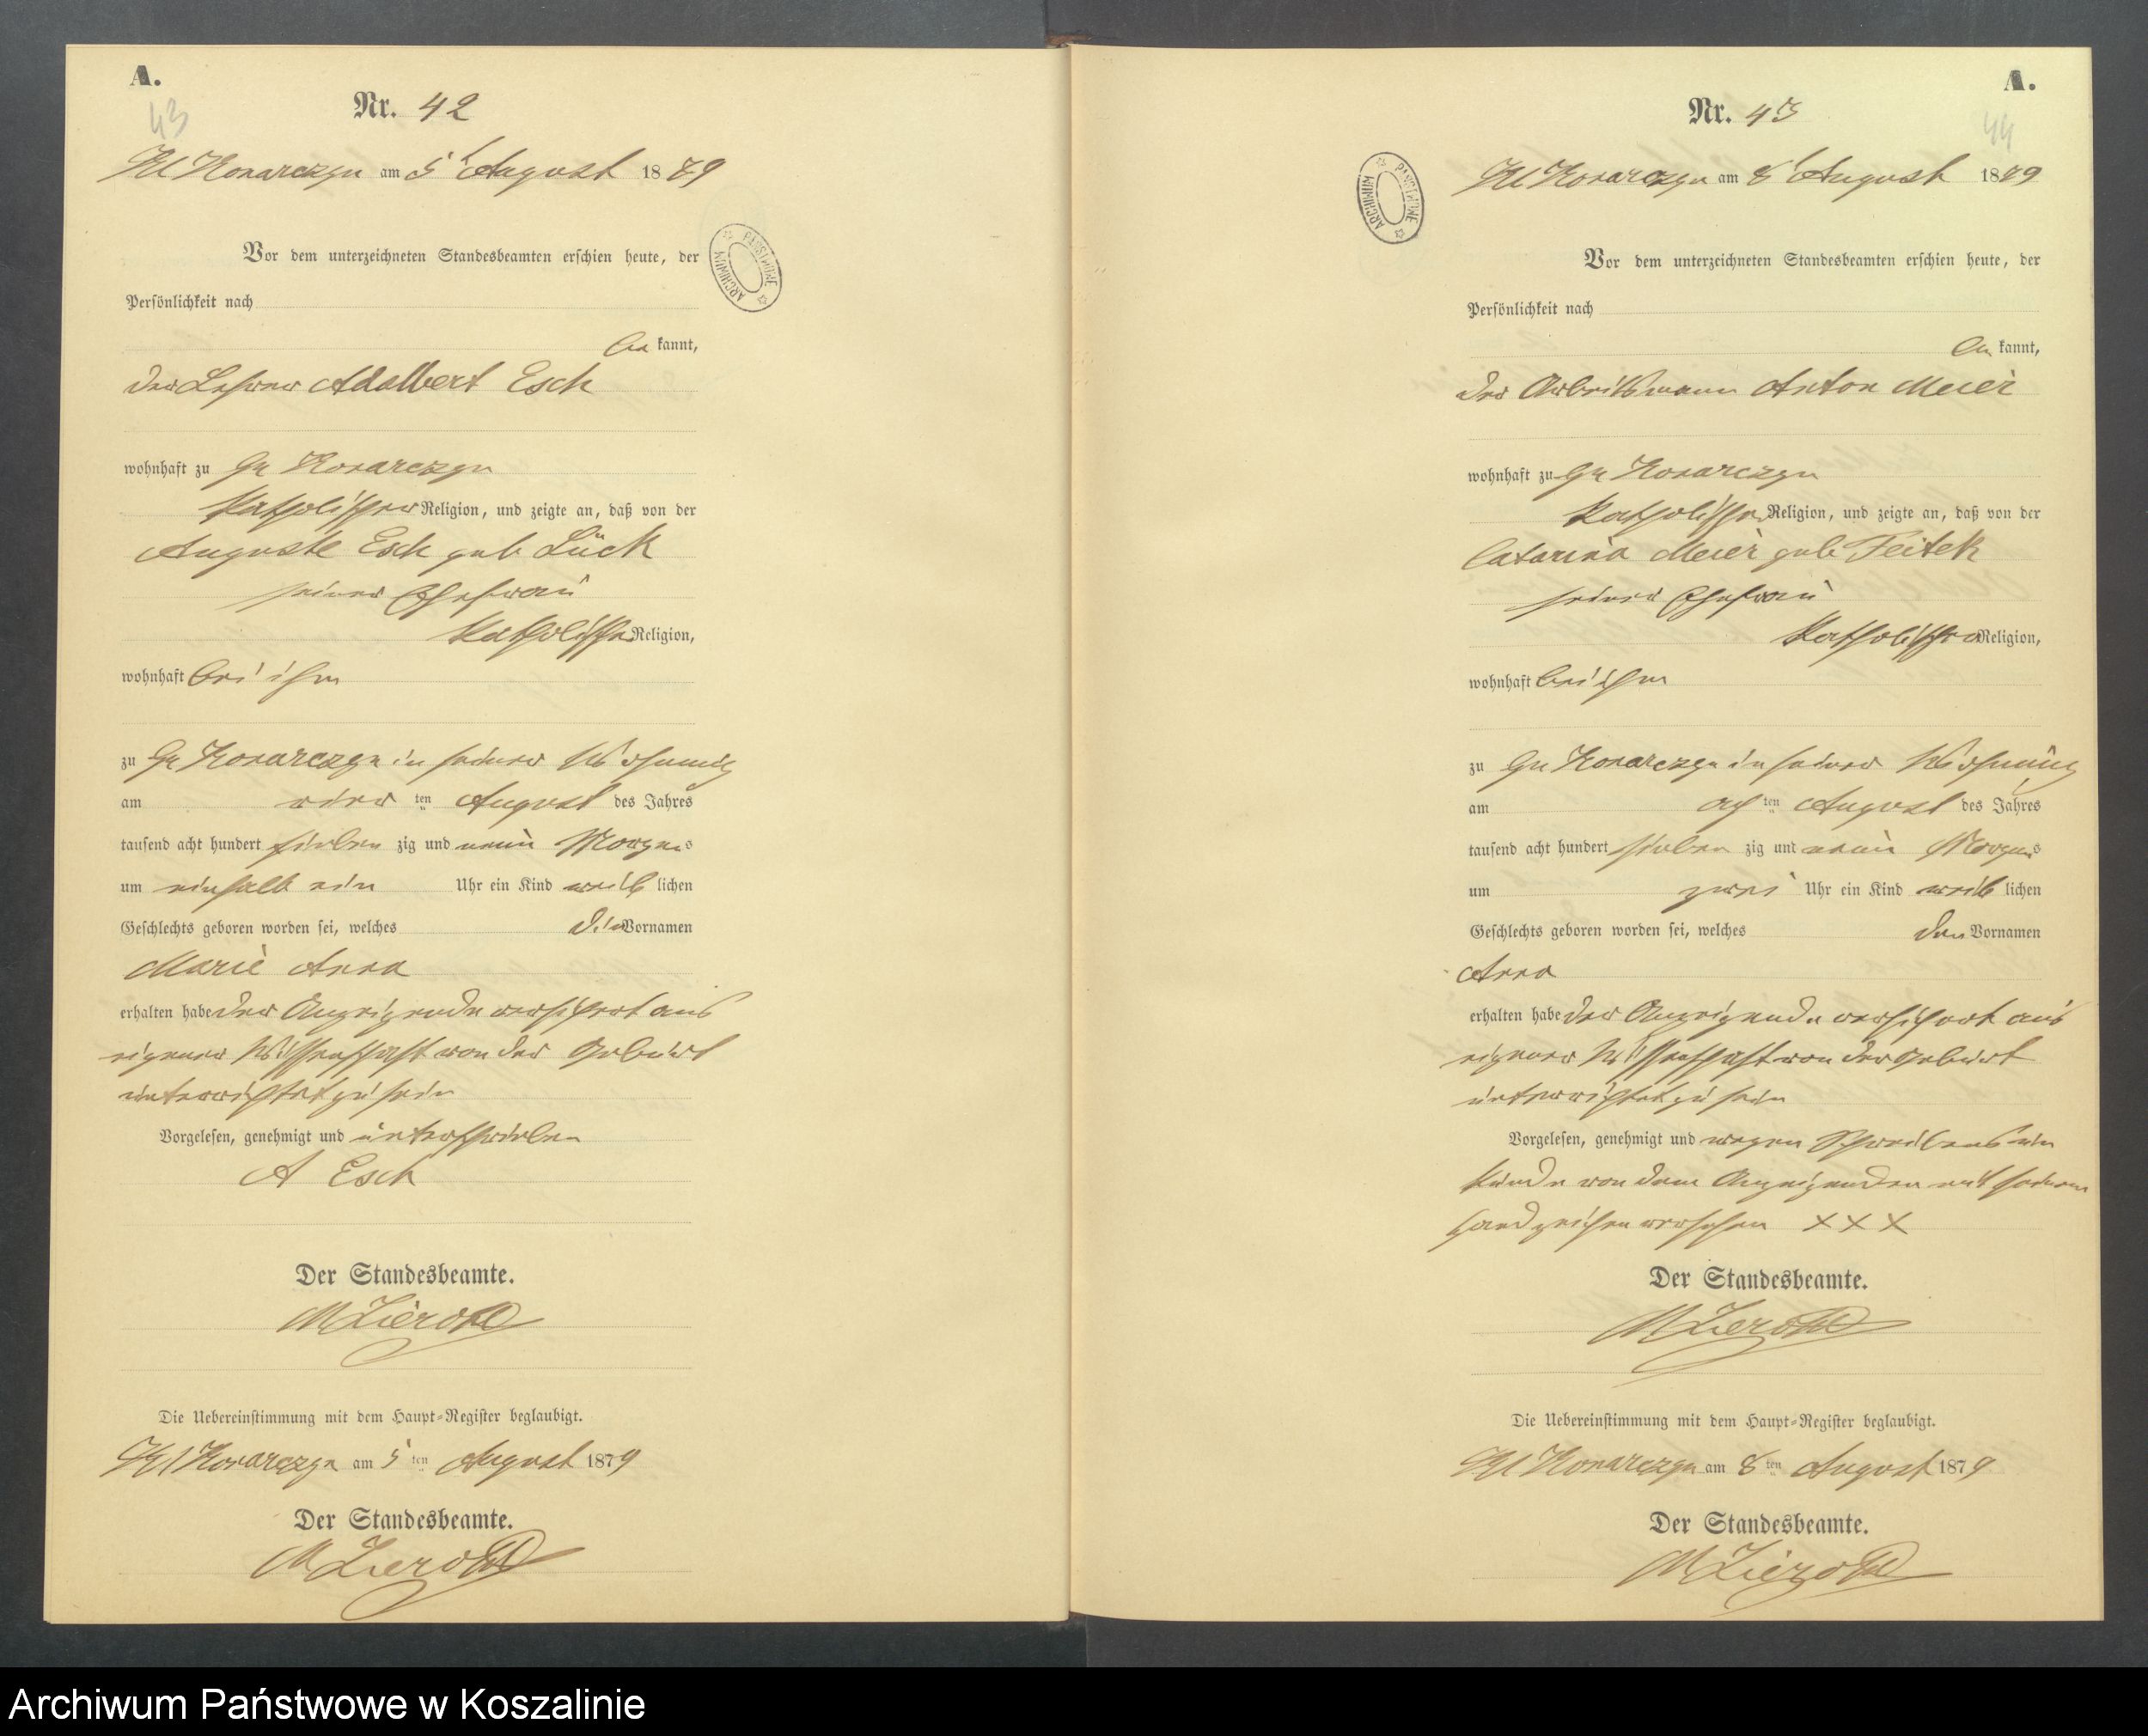 A.
43
Nr. 42
Kl Konarczyn am 5t August 1879
Vor dem unterzeichneten Standesbeamten erschien heute, der
Persönlichkeit nach
be kannt,
der Lehrer Adalbert Esch
wohnhaft zu Gr Konarczyn
katholischer Religion, und zeigte an, daß von der
Auguste Esch geb Lück
seiner Ehefrau
katholischer Religion,
wohnhaft bei ihm
zu Gr Konarczyn in seiner Wohnung
am vier ten August des Jahres
tausend acht hundert sieben zig und neun Morgens
um einhalb ein Uhr ein Kind weib lichen
Geschlechts geboren worden sei, welches die Vornamen
Marie Anna
erhalten habe der Anzeigende versichert aus
eigener Wissenschaft von der Geburt
unterrichtet zu sein
Vorgelesen, genehmigt und unterschrieben
A Esch
Der Standesbeamte.
Die Uebereinstimmung mit dem Haupt-Register beglaubigt.
Kl Konarczyn am 5 ten August 1879
Der Standesbeamte.
A.
44
Nr. 43
Kl Konarczyn am 8t August 1879
ARCHIWUM PAŃSTWOWE
Vor dem unterzeichneten Standesbeamten erschien heute, der
Persönlichkeit nach
be kannt,
der Arbeitsmann Anton Meier
wohnhaft zu Gr Konarczyn
katholischer Religion, und zeigte an, daß von der
Catarina Meier geb Feitek
seiner Ehefrau
katholischer Religion,
wohnhaft bei ihm
zu Gr Konarczyn in seiner Wohnung
am ach ten August des Jahres
tausend acht hundert sieben zig und neun Morgens
um zwei Uhr ein Kind weib lichen
Geschlechts geboren worden sei, welches den Vornamen
Anna
erhalten habe der Anzeigende versichert aus
eigener Wissenschaft von der Geburt
unterrichtet zu sein
Vorgelesen, genehmigt und wegen Schreibens un
kunde von dem Anzeigenden mit seinem
Handzeichen versehen X X X
Der Standesbeamte.
Die Uebereinstimmung mit dem Haupt-Register beglaubigt.
Kl Konarczyn am 8 ten August 1879
Der Standesbeamte.
Archiwum Państwowe w Koszalinie